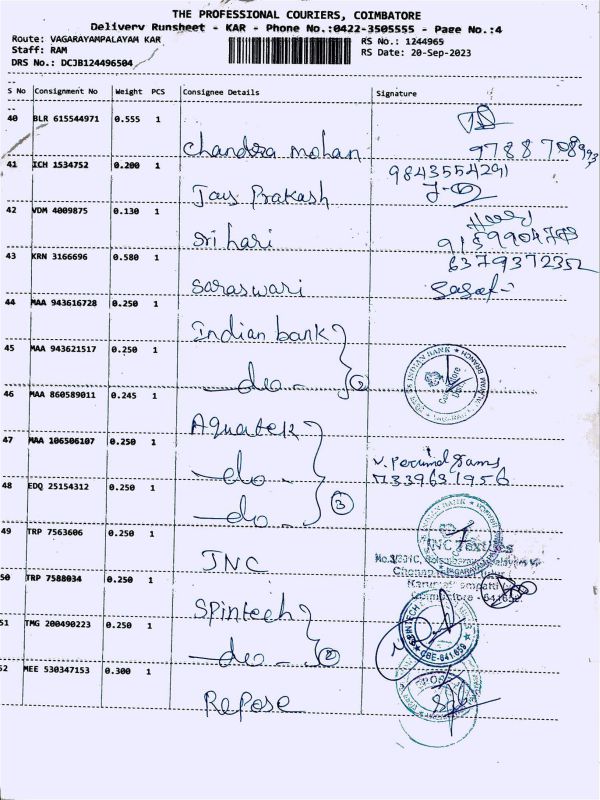 THE PROFESSIONAL COURIERS, COIMBATORE
Delivery Runsheet - KAR - Phone No.:0422-3505555 - Page No.:4
Route: VAGARAYAMPALAYAM KAR
RS No.: 1244965
Staff: RAM
RS Date: 20-Sep-2023
DRS No.: DCJB124496504
S No Consignment No Weight PCS Consignee Details Signature
40 BLR 615544971 0.555 1
Chandra mohan
41 ICH 1534752 0.200 1
9843554291
Jay Prakash
42 VDM 4009875 0.130 1
Sri hari
43 KRN 3166696 0.580 1
6379372352
Saraswari
44 MAA 943616728 0.250 1
Indian bank
45 MAA 943621517 0.250 1
do 2
46 MAA 860589011 0.245 1
Aquatek
47 MAA 106506107 0.250 1
do
7339631956
48 EDQ 25154312 0.250 1
do 3
49 TRP 7563606 0.250 1
JNC
JNC Textiles
50 TRP 7588034 0.250 1
Coimbatore - 641659.
Spintech
51 TMG 200490223 0.250 1
do 2
52 MEE 530347153 0.300 1
Repose